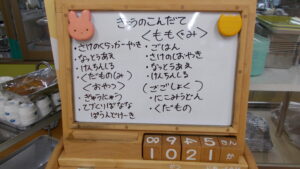 きょうのこんだて
<ももぐみ>
・さけのくらっかーやき
・なっとうあえ
・けんちんじる
<くだもの(み)
<おやつ>
・ぎゅうにゅう
・てづくりばなな
ぱうんどけーき
・ごはん
・さけのしおやき
・なっとうあえ
・けんちんじる
(ごごしょく)
・にこみうどん
・くだもの
1021か